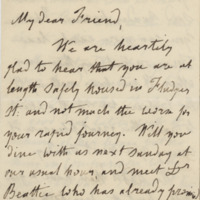 My dear Friend,
We are heartily
glad to hear that you are at
length safely housed in Fludyer
St. and not much the worse for
your rapid journey. Will you
dine with us next Sunday at
our usual hour, and meet Dr
Beattie who has already